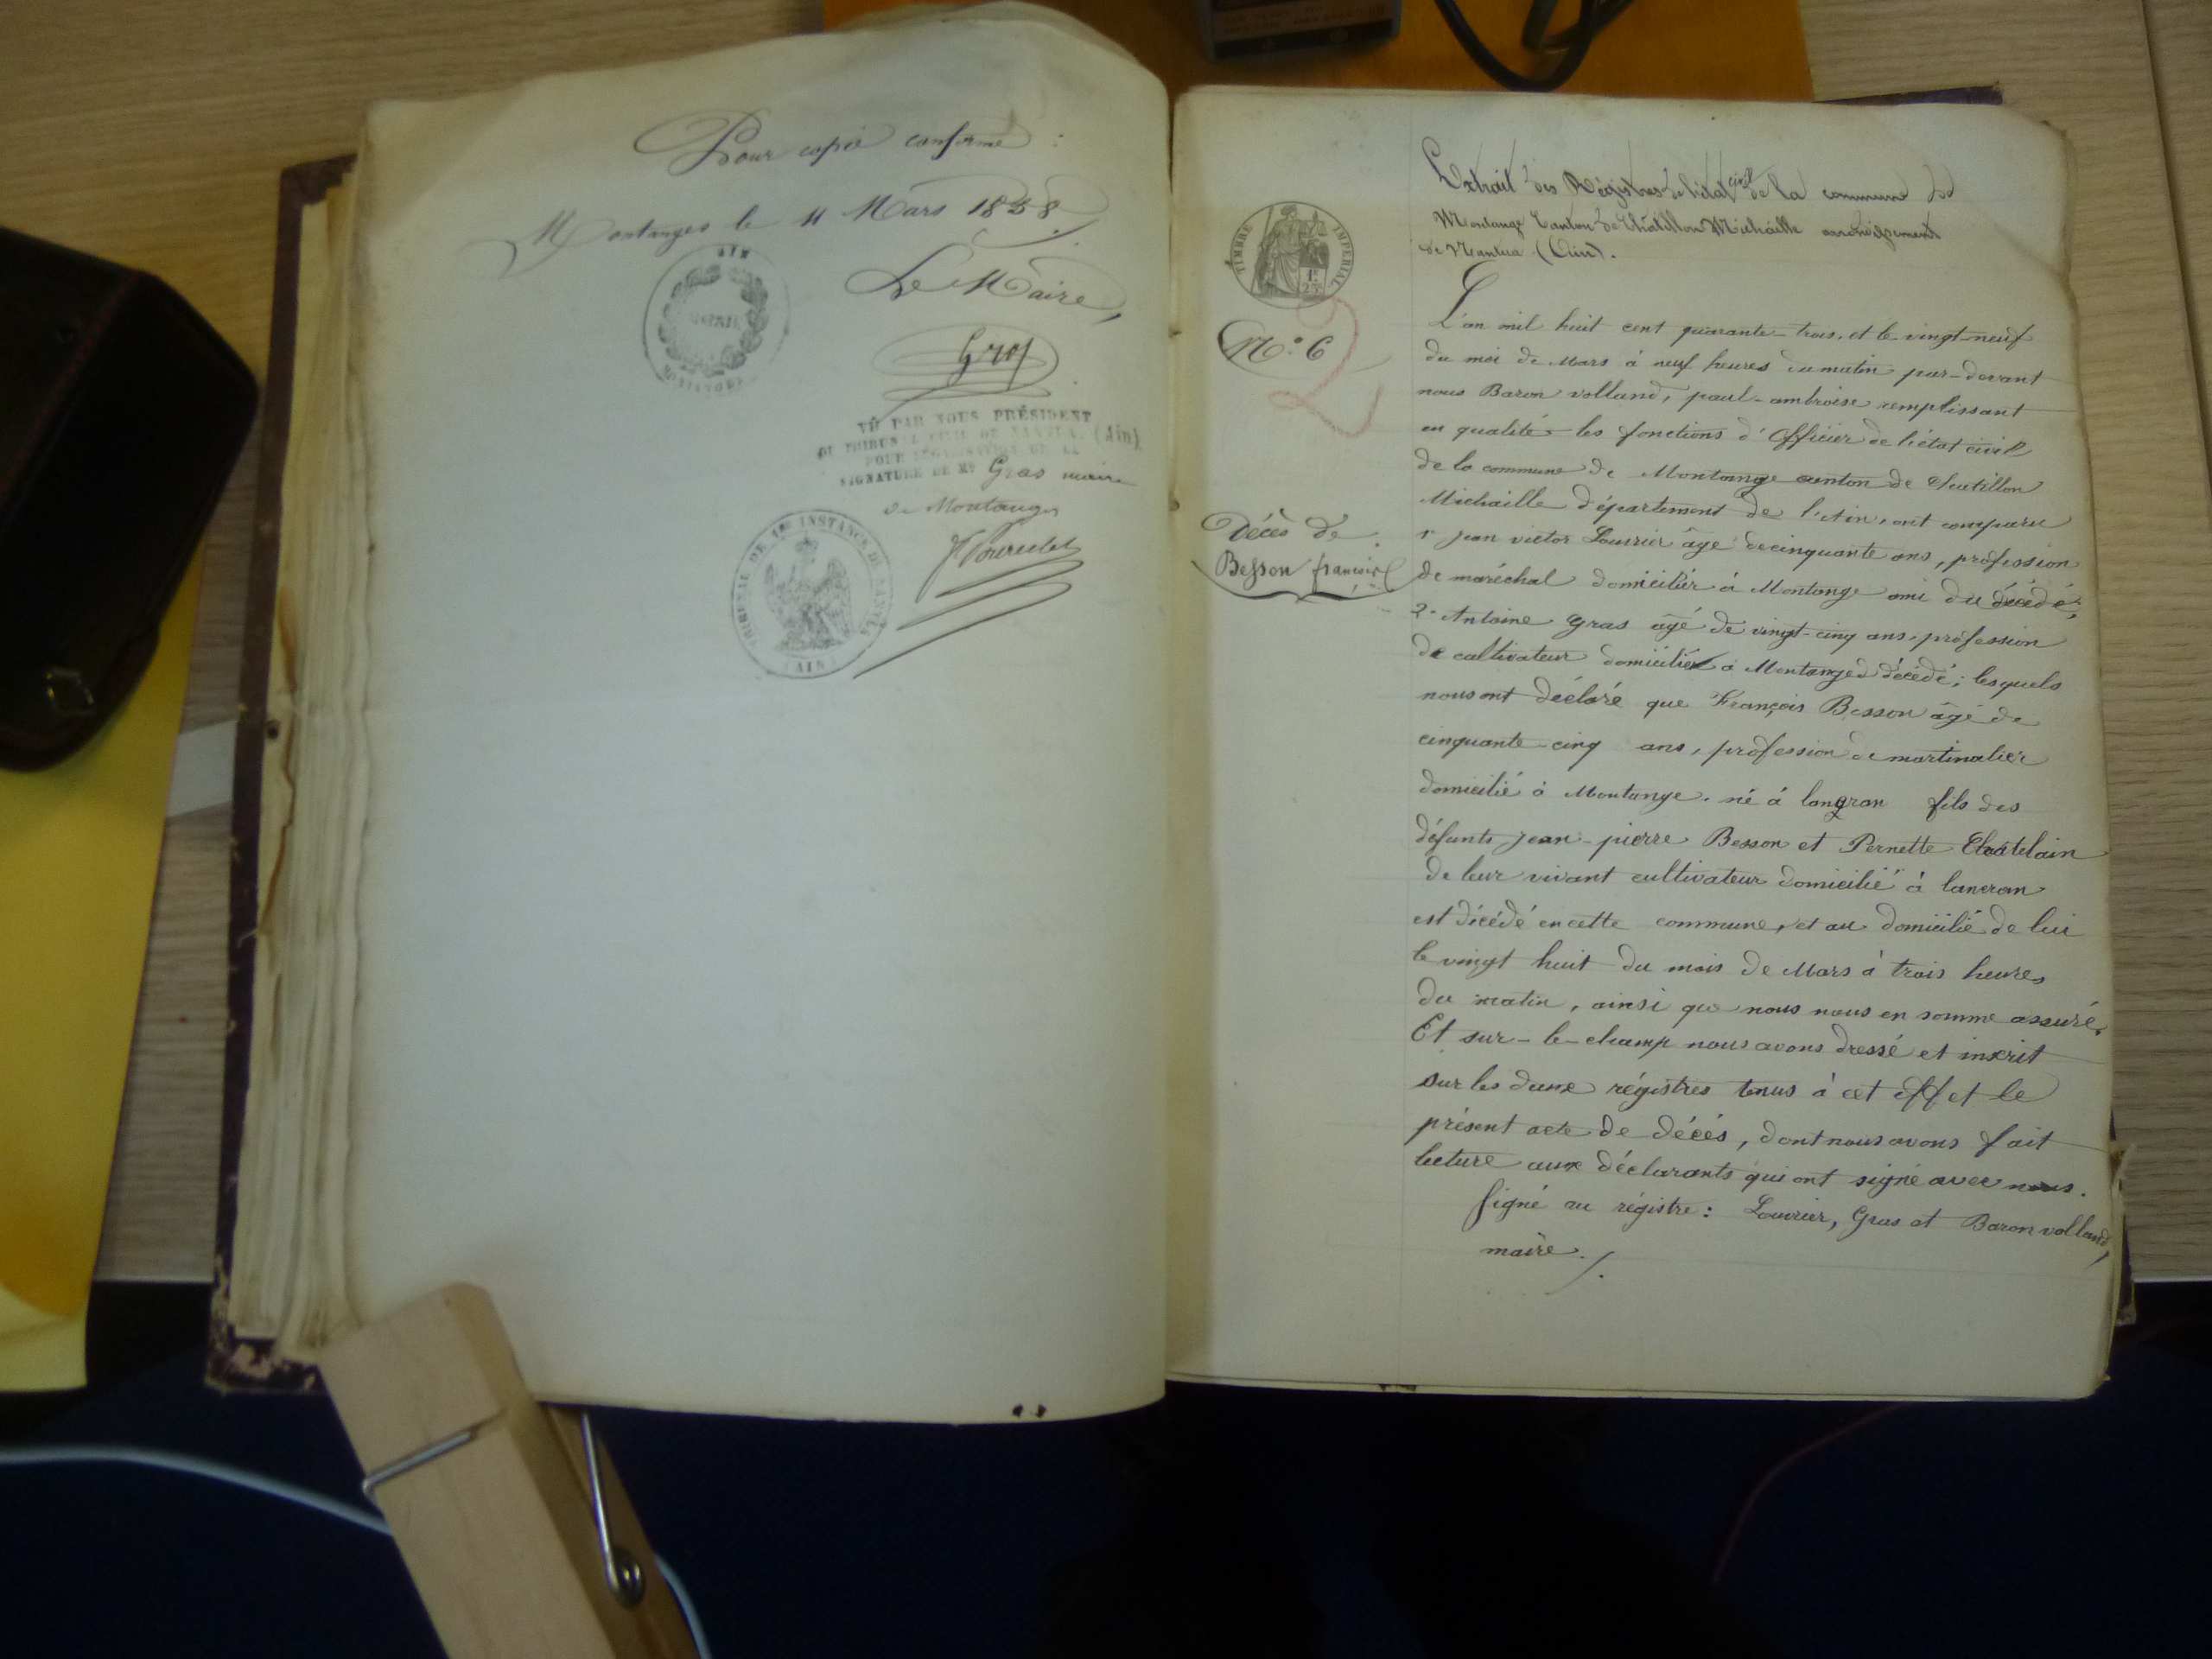 Pour copie conforme :
Montanges le 11 Mars 1858
Le Maire,
Gros
AIN
MAIRIE
MONTANGES
VU PAR NOUS PRÉSIDENT
DU TRIBUNAL CIVIL DE NANTUA (Ain)
POUR LÉGALISATION DE LA
SIGNATURE DE Mr Gras maire
de Montanges
TRIBUNAL DE 1re INSTANCE DE NANTUA
(AIN)
Extrait des Régistres de l'état civil de la commune de
Montange Canton de Châtillon Michaille arrondissement
de Nantua (Ain).
TIMBRE IMPERIAL
N° 6
2
Décès de
Besson françois
L'an mil huit cent quarante-trois, et le vingt-neuf
du moi de Mars à neuf heures du matin par-devant
nous Baron volland, paul-ambroise remplissant
en qualité les fonctions d'Officier de l'état civil
de la commune de Montange canton de Chatillon
Michaille département de l'Ain, ont comparu
1° jean victor Louvrier âgé de cinquante ans, profession
de maréchal domicilié à Montange ami du décédé;
2° Antoine Gras âgé de vingt-cinq ans, profession
de cultivateur domicilié à Montanged décédé; lesquels
nous ont déclaré que François Besson âgé de
cinquante-cinq ans, profession de martinalier
domicilié à Montange. né à langran fils des
défunts jean-pierre Besson et Pernette Chatelain
de leur vivant cultivateur domicilié à lancran
est décédé en cette commune, et au domicilié de lui
le vingt huit du mois de Mars à trois heures
du matin, ainsi que nous nous en somme assuré.
Et sur-le-champ nous avons dressé et inscrit
sur les deux régistres tenus à cet effet le
présent acte de décés, dont nous avons fait
lecture aux déclarants qui ont signé avec nous.
Signé au régistre : Louvrier, Gras et Baron volland,
maire ./.